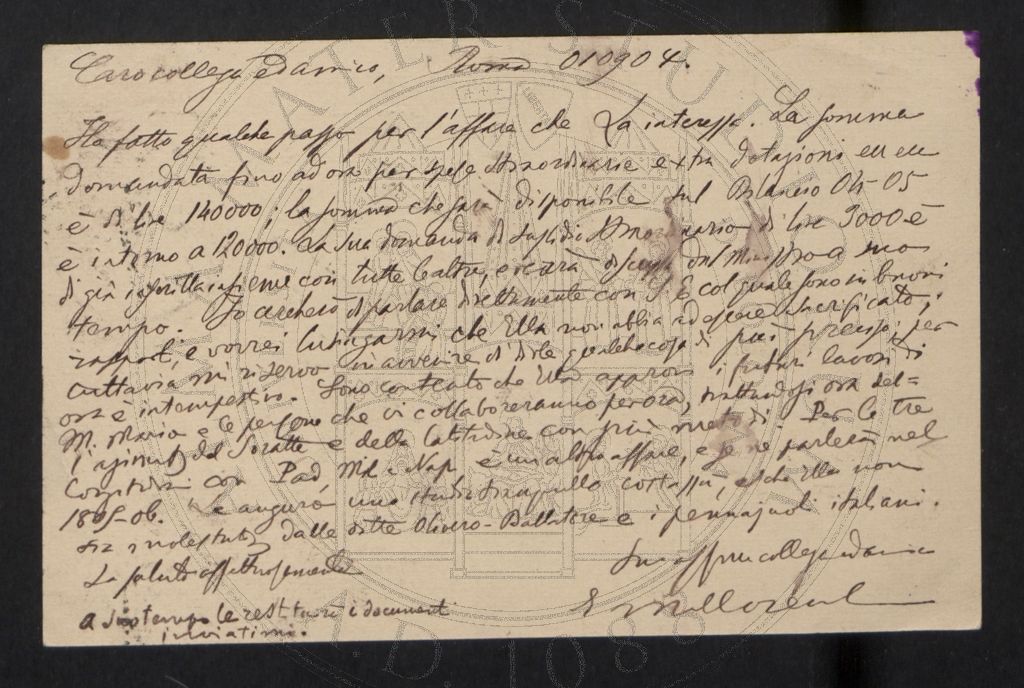 Caro collega ed amico, Roma 010904.
Ho fatto qualche passo per l'affare che La interessa. La somma
domandata fino ad ora per spese straordinarie extra dotazioni
è di lire 140000; la somma che sarà disponibile sul Bilancio 04-05
è intorno a 120000. La sua domanda di sussidio straordinario di lire 3000 è
di già iscritta insieme con tutte le altre, e verrà discussa dal Ministro a suo
tempo. Io cercherò di parlare direttamente con S. E. col quale sono in buoni
rapporti, e vorrei lusingarmi che Ella non abbia ad essere sacrificato;
tuttavia mi riservo in avvenire di dirle qualche cosa di più preciso; per
ora è intempestivo. Sono contento che Ella approvi i futuri lavori di
M. Mario e le persone che vi collaboreranno per ora, trattandosi ora del=
l'azimut del Soratte e della latitudine con più metodi. Per le tre
Longitudini con Pad, Mil e Nap è un altro affare, e se ne parlerà nel
1905-06. Le auguro uno studio tranquillo costassù, e che Ella non
sia molestato dalle ditte Olivero-Ballatore e i pennajuoli italiani.
La saluto affettuosamente
Suo affmo collega ed amico
E Millosevich
A suo tempo le restituirò i documenti
inviatimi.
ALMA MATER STUDIORUM
A.D. 1088